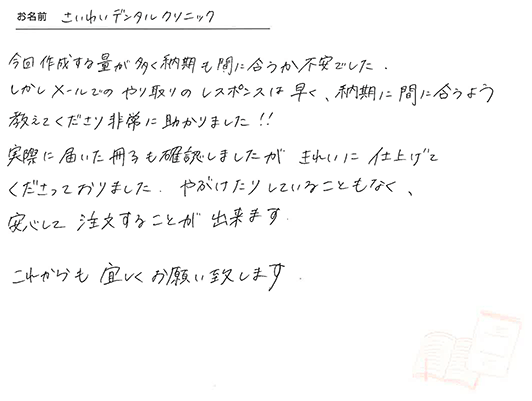 お名前 さいわいデンタルクリニック
今回作成する量が多く納期も間に合うか不安でした.
しかしメールでのやり取りのレスポンスは早く、納期に間に合うよう
教えてくださり非常に助かりました!!
実際に届いた冊子も確認しましたがきれいに仕上げて
くださっておりました. やぶけたりしていることもなく、
安心して注文することが出来ます.
これからも宜しくお願い致します.